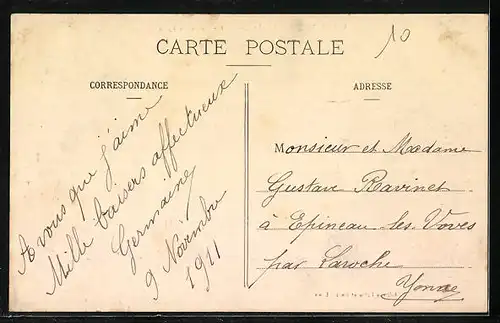 CARTE POSTALE
10
CORRESPONDANCE
ADRESSE
A vous que j'aime
Mille baisers affectueux
Germaine
9 Novembre
1911
Monsieur et Madame
Gustave Ravinet
à Epineau-les-Voves
par Laroche
Yonne